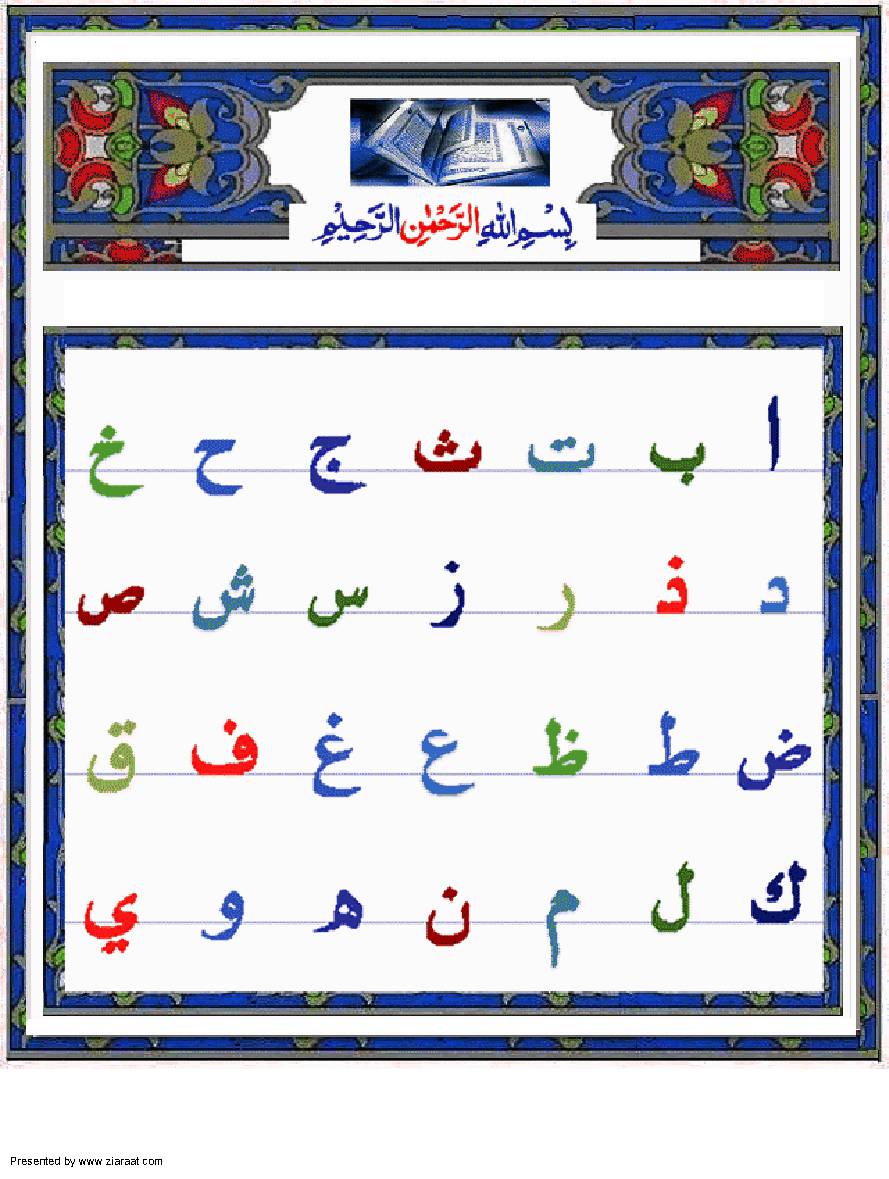 بِسْمِ اللهِ الرَّحْمٰنِ الرَّحِيْمِ
ا ب ت ث ج ح خ
د ذ ر ز س ش ص
ض ط ظ ع غ ف ق
ك ل م ن ه و ي
Presented by www.ziaraat.com